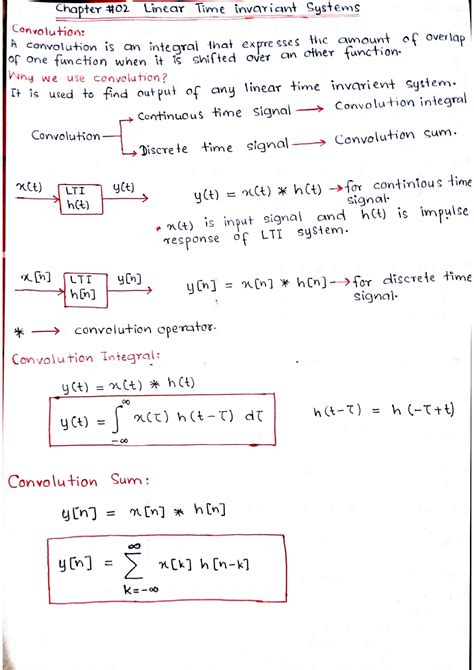 Chapter #02 Linear Time invariant Systems
Convolution:
A convolution is an integral that expresses the amount of overlap
of one function when it is shifted over an other function.
Why we use convolution?
It is used to find output of any linear time invarient system.
Convolution → Continuous time signal → Convolution integral
→ Discrete time signal → Convolution sum.
x(t) → LTI h(t) → y(t)
y(t) = x(t) * h(t) → for continious time
signal.
• x(t) is input signal and h(t) is impulse
response of LTI system.
x[n] → LTI h[n] → y[n]
y[n] = x[n] * h[n] → for discrete time
signal.
* → convolution operator.
Convolution Integral:
y(t) = x(t) * h(t)
y(t) = ∫_{-∞}^{∞} x(τ) h(t-τ) dτ
h(t-τ) = h(-τ+t)
Convolution Sum:
y[n] = x[n] * h[n]
y[n] = Σ_{k=-∞}^{∞} x[k] h[n-k]